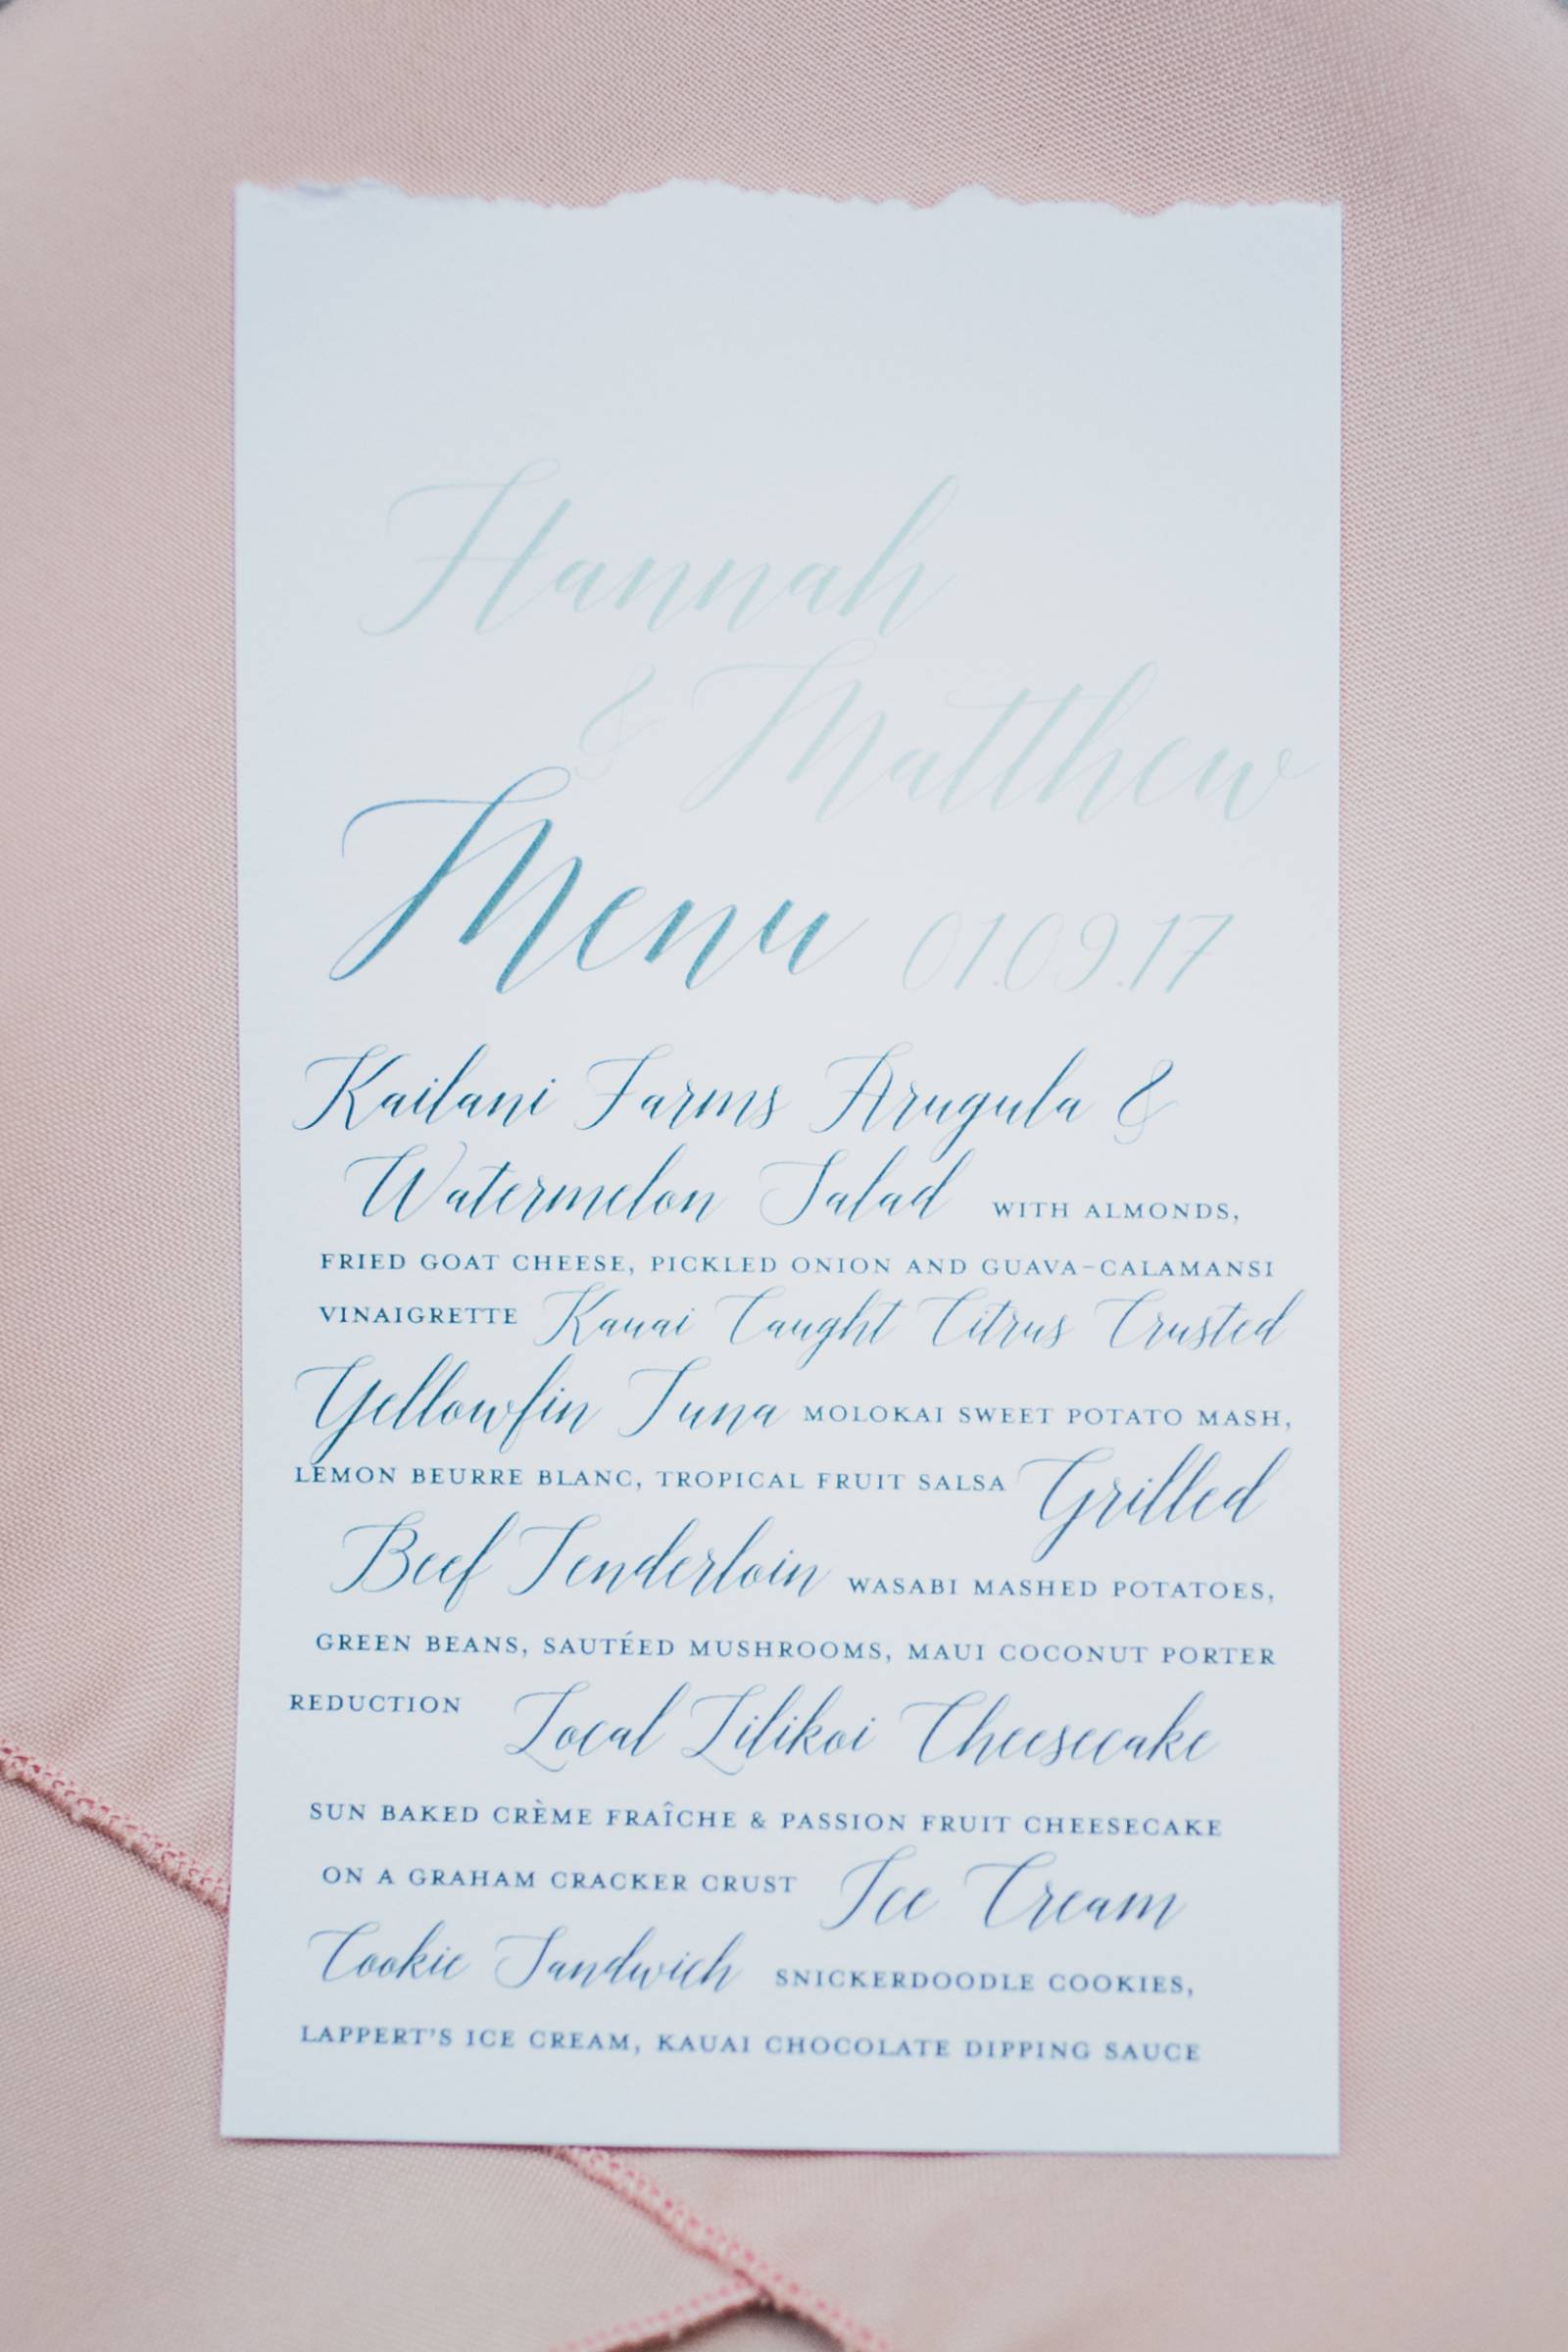 Hannah
& Matthew
Menu 01.09.17
Kailani Farms Arugula &
Watermelon Salad WITH ALMONDS,
FRIED GOAT CHEESE, PICKLED ONION AND GUAVA-CALAMANSI
VINAIGRETTE Kauai Caught Citrus Crusted
Yellowfin Tuna MOLOKAI SWEET POTATO MASH,
LEMON BEURRE BLANC, TROPICAL FRUIT SALSA Grilled
Beef Tenderloin WASABI MASHED POTATOES,
GREEN BEANS, SAUTÉED MUSHROOMS, MAUI COCONUT PORTER
REDUCTION Local Lilikoi Cheesecake
SUN BAKED CRÈME FRAÎCHE & PASSION FRUIT CHEESECAKE
ON A GRAHAM CRACKER CRUST Ice Cream
Cookie Sandwich SNICKERDOODLE COOKIES,
LAPPERT'S ICE CREAM, KAUAI CHOCOLATE DIPPING SAUCE